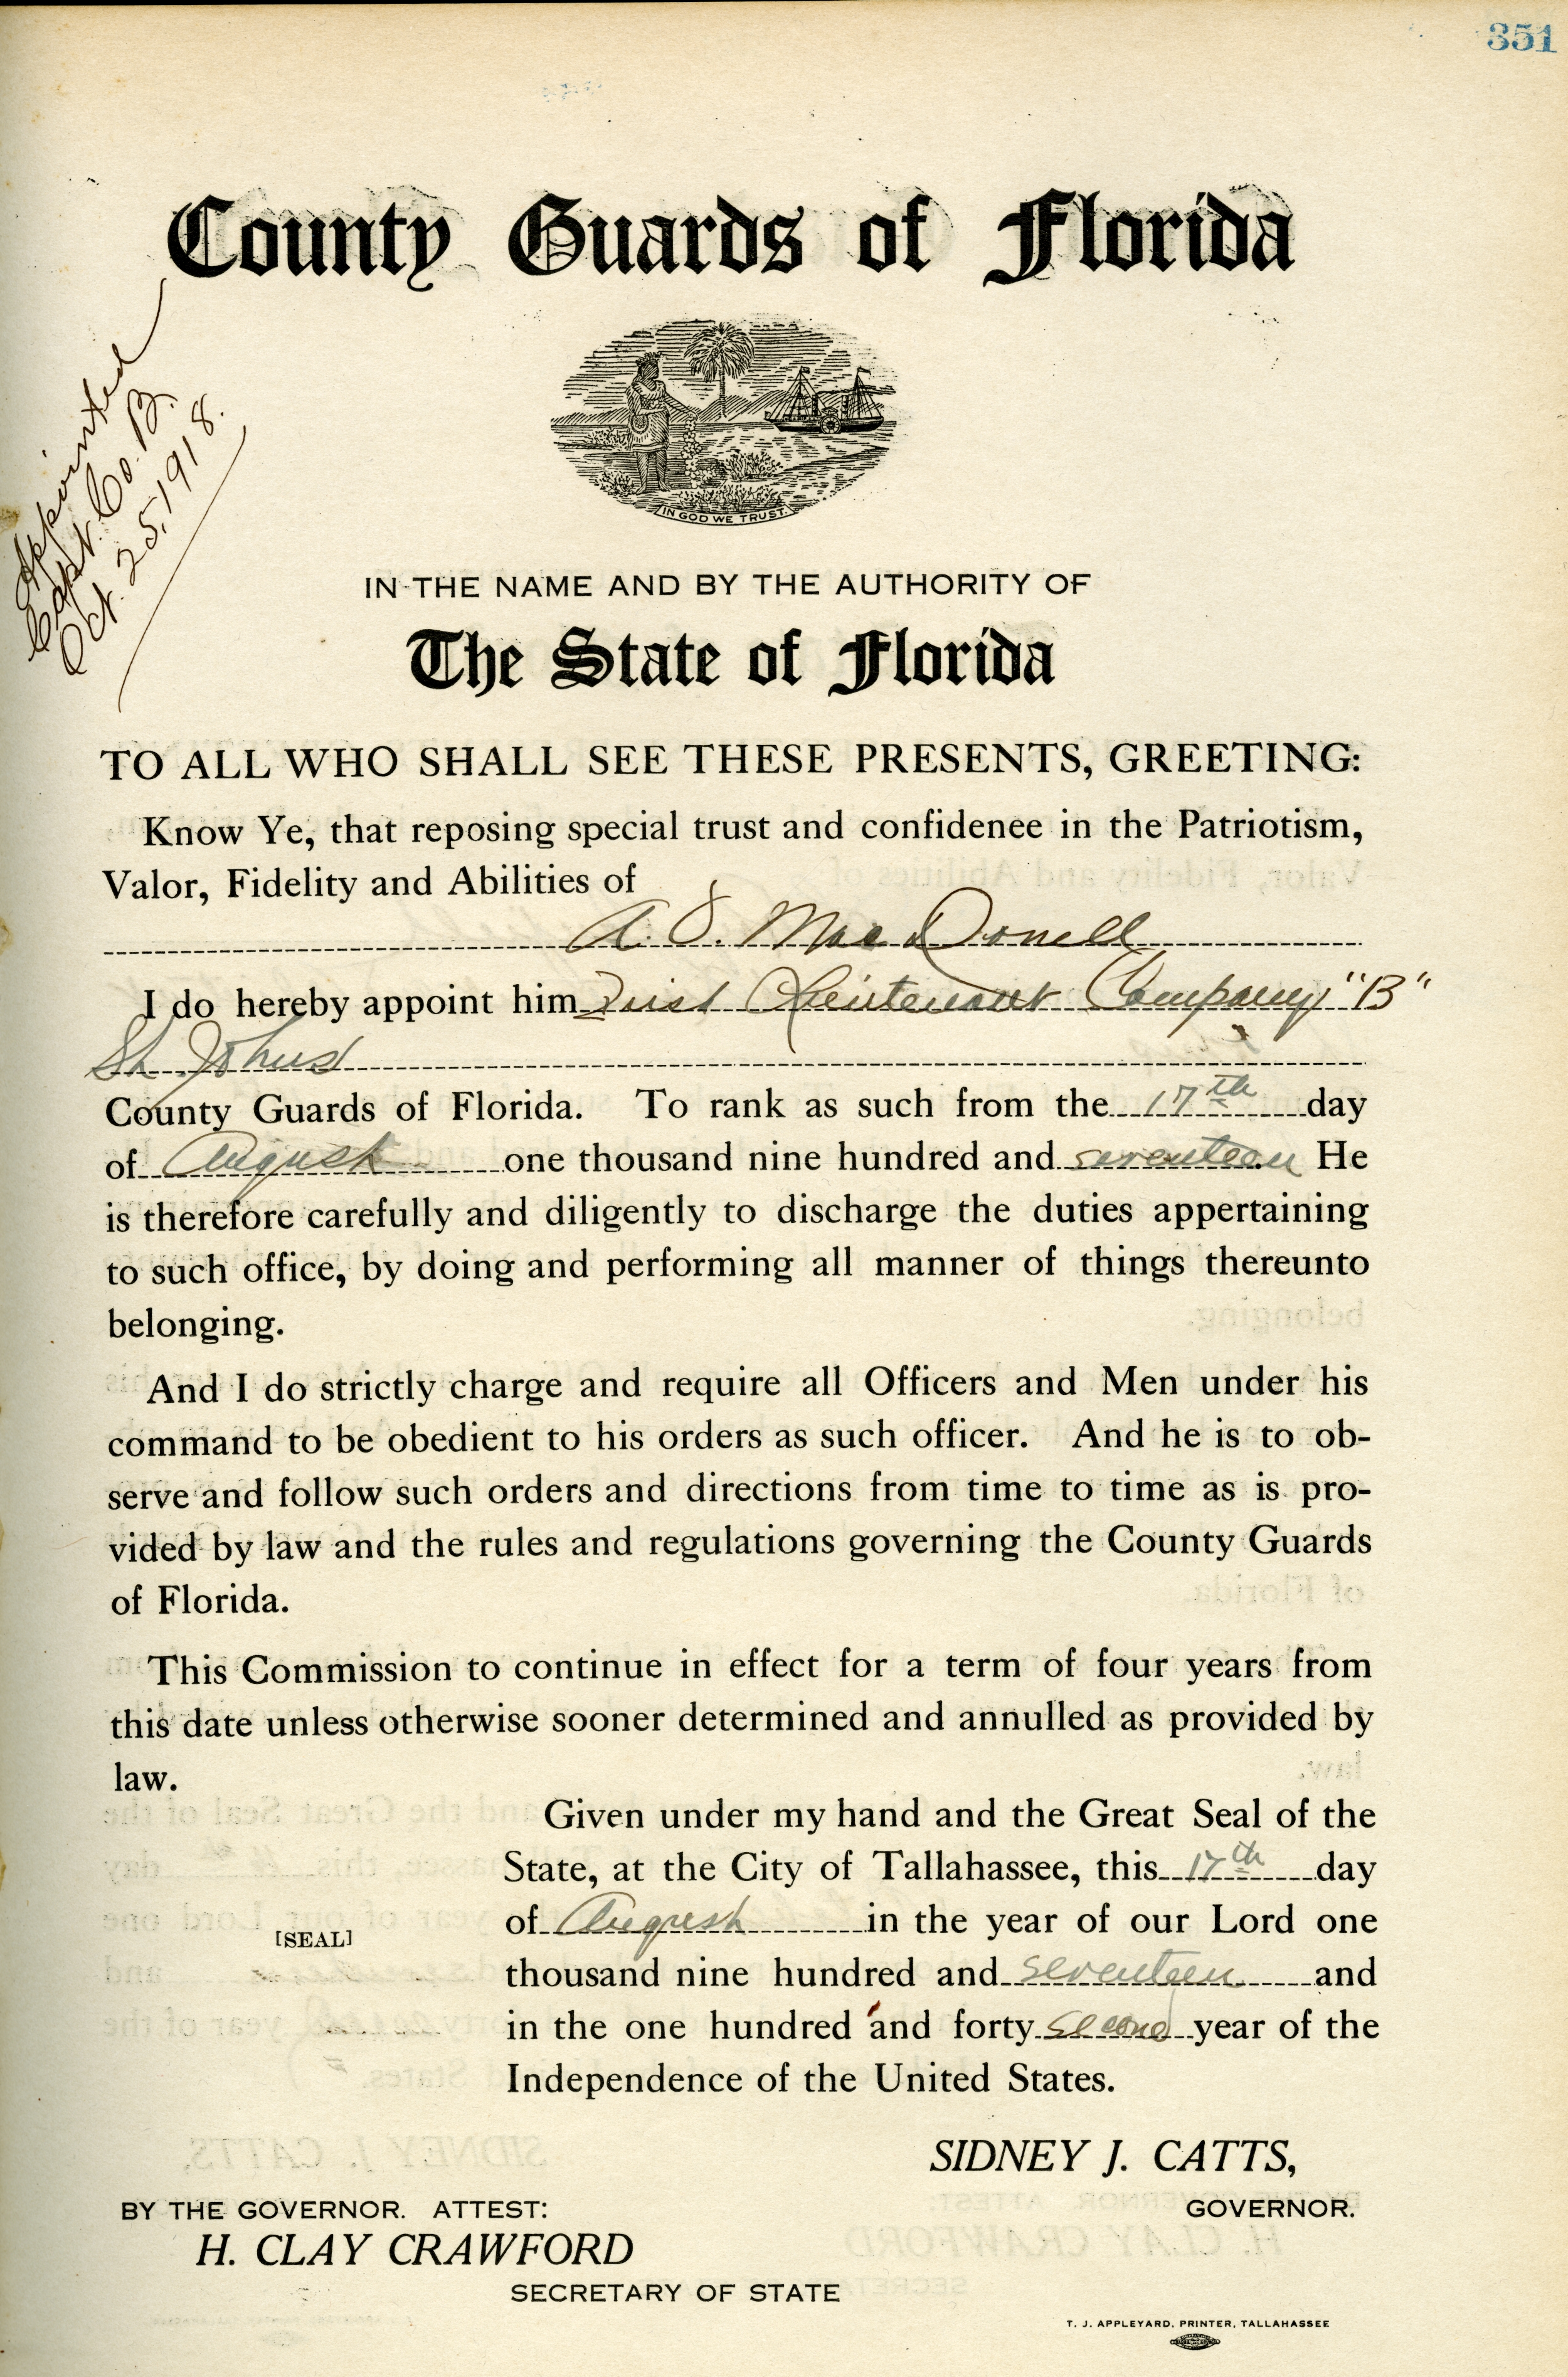 351
County Guards of Florida
Appointed
Capt. Co. B.
Oct. 25, 1918.
IN GOD WE TRUST.
IN THE NAME AND BY THE AUTHORITY OF
The State of Florida
TO ALL WHO SHALL SEE THESE PRESENTS, GREETING:
Know Ye, that reposing special trust and confidenee in the Patriotism,
Valor, Fidelity and Abilities of
A. J. MacDonell
I do hereby appoint him First Lieutenant Company "B"
St. Johns
County Guards of Florida. To rank as such from the 17th day
of August one thousand nine hundred and seventeen He
is therefore carefully and diligently to discharge the duties appertaining
to such office, by doing and performing all manner of things thereunto
belonging.
And I do strictly charge and require all Officers and Men under his
command to be obedient to his orders as such officer. And he is to ob-
serve and follow such orders and directions from time to time as is pro-
vided by law and the rules and regulations governing the County Guards
of Florida.
This Commission to continue in effect for a term of four years from
this date unless otherwise sooner determined and annulled as provided by
law.
Given under my hand and the Great Seal of the
State, at the City of Tallahassee, this 17th day
of August in the year of our Lord one
[SEAL]
thousand nine hundred and seventeen and
in the one hundred and forty second year of the
Independence of the United States.
SIDNEY J. CATTS,
BY THE GOVERNOR. ATTEST:
GOVERNOR.
H. CLAY CRAWFORD
SECRETARY OF STATE
T. J. APPLEYARD, PRINTER, TALLAHASSEE